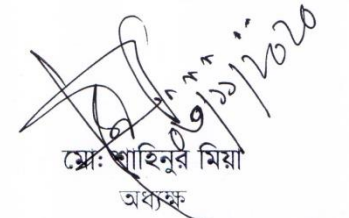 ০৬/১১/২০২০
মো: শাহিনুর মিয়া
অধ্যক্ষ